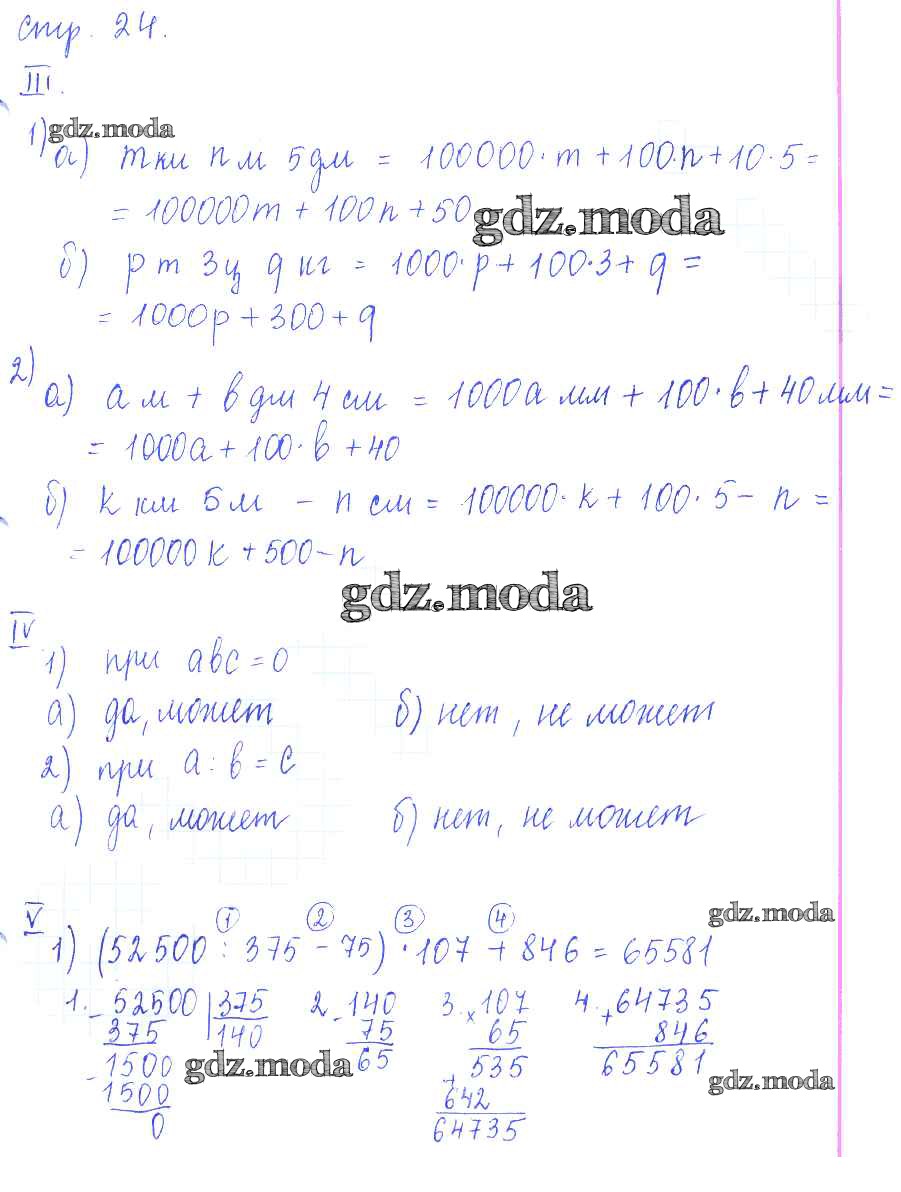 стр. 24.
III.
gdz.moda
1) а) m км n м 5 дм = 100000·m + 100·n + 10·5 =
= 100000m + 100n + 50
gdz.moda
б) p т 3 ц q кг = 1000·p + 100·3 + q =
= 1000p + 300 + q
2) а) a м + b дм 4 см = 1000a мм + 100·b + 40 мм =
= 1000a + 100·b + 40
б) k км 5 м - n см = 100000·k + 100·5 - n =
= 100000k + 500 - n
gdz.moda
IV
1) при abc = 0
а) да, может б) нет, не может
2) при a : b = c
а) да, может б) нет, не может
gdz.moda
V 1 2 3 4
1) (52500 : 375 - 75) · 107 + 846 = 65581
1. - 52500 | 375 2. - 140 3. × 107 4. + 64735
375 140 75 65 846
- 1500 65 + 535 65581
gdz.moda
1500 642
gdz.moda
0 64735